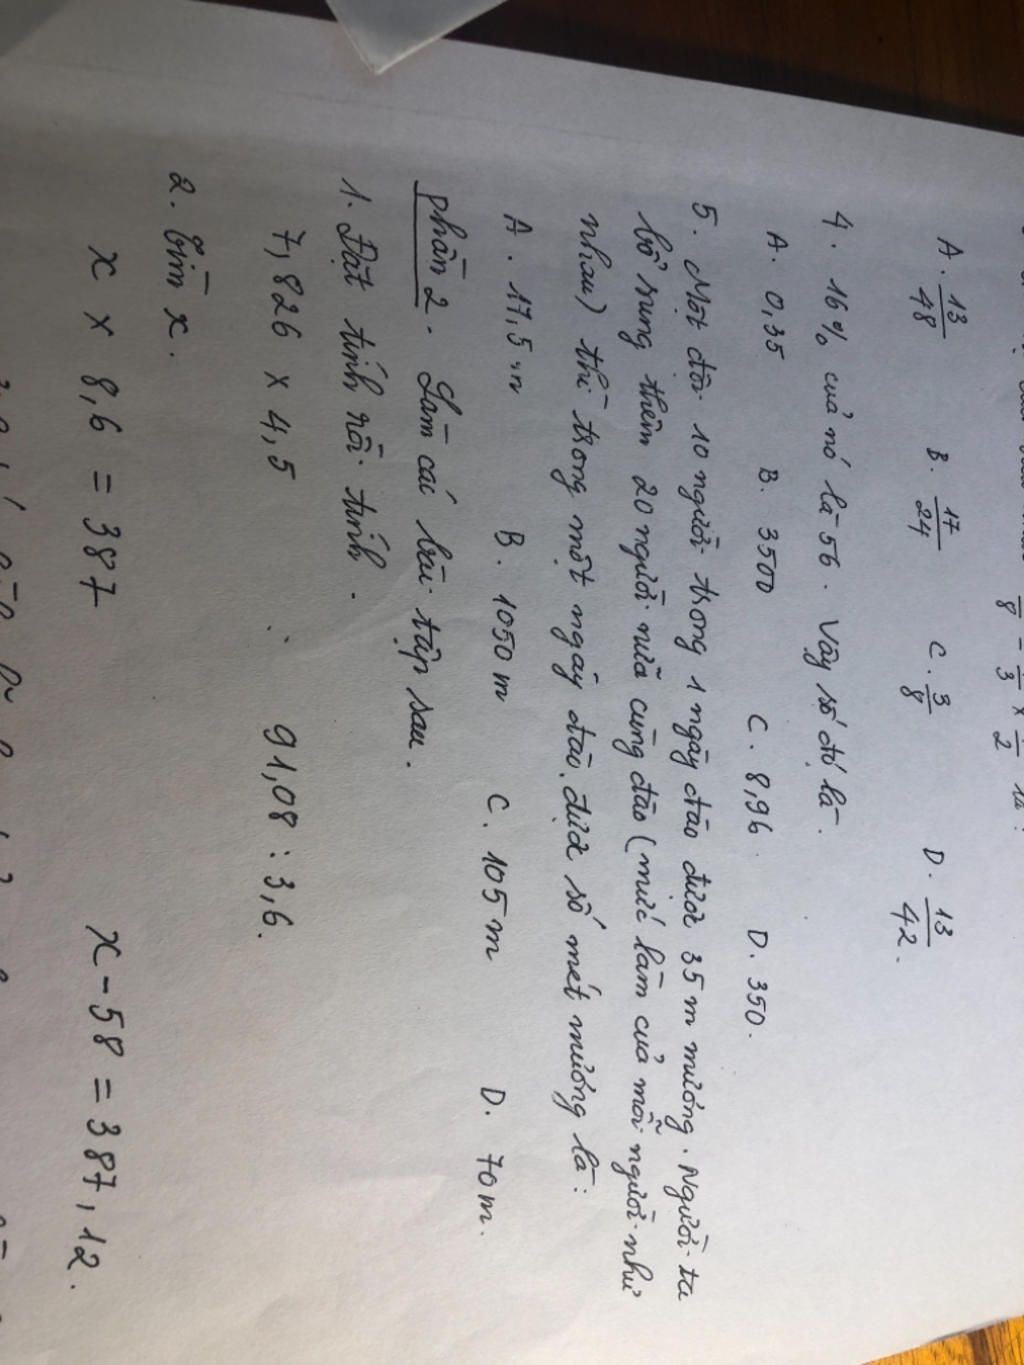 8 - 3 × 2 là :
A. 13/48 B. 17/24 C. 3/8 D. 13/42.
4. 16% của nó là 56. Vậy số đó là.
A. 0,35 B. 3500 C. 8,96 D. 350.
5. Một đội 10 người trong 1 ngày đào được 35 m mương. Người ta
bổ sung thêm 20 người nữa cùng đào (mức làm của mỗi người như
nhau) thì trong một ngày đào được số mét mương là:
A. 17,5 m B. 1050 m C. 105 m D. 70 m.
Phần 2. Làm các bài tập sau.
1. Đặt tính rồi tính.
7,826 × 4,5 91,08 : 3,6.
2. Tìm x.
x × 8,6 = 387 x - 58 = 387,12.